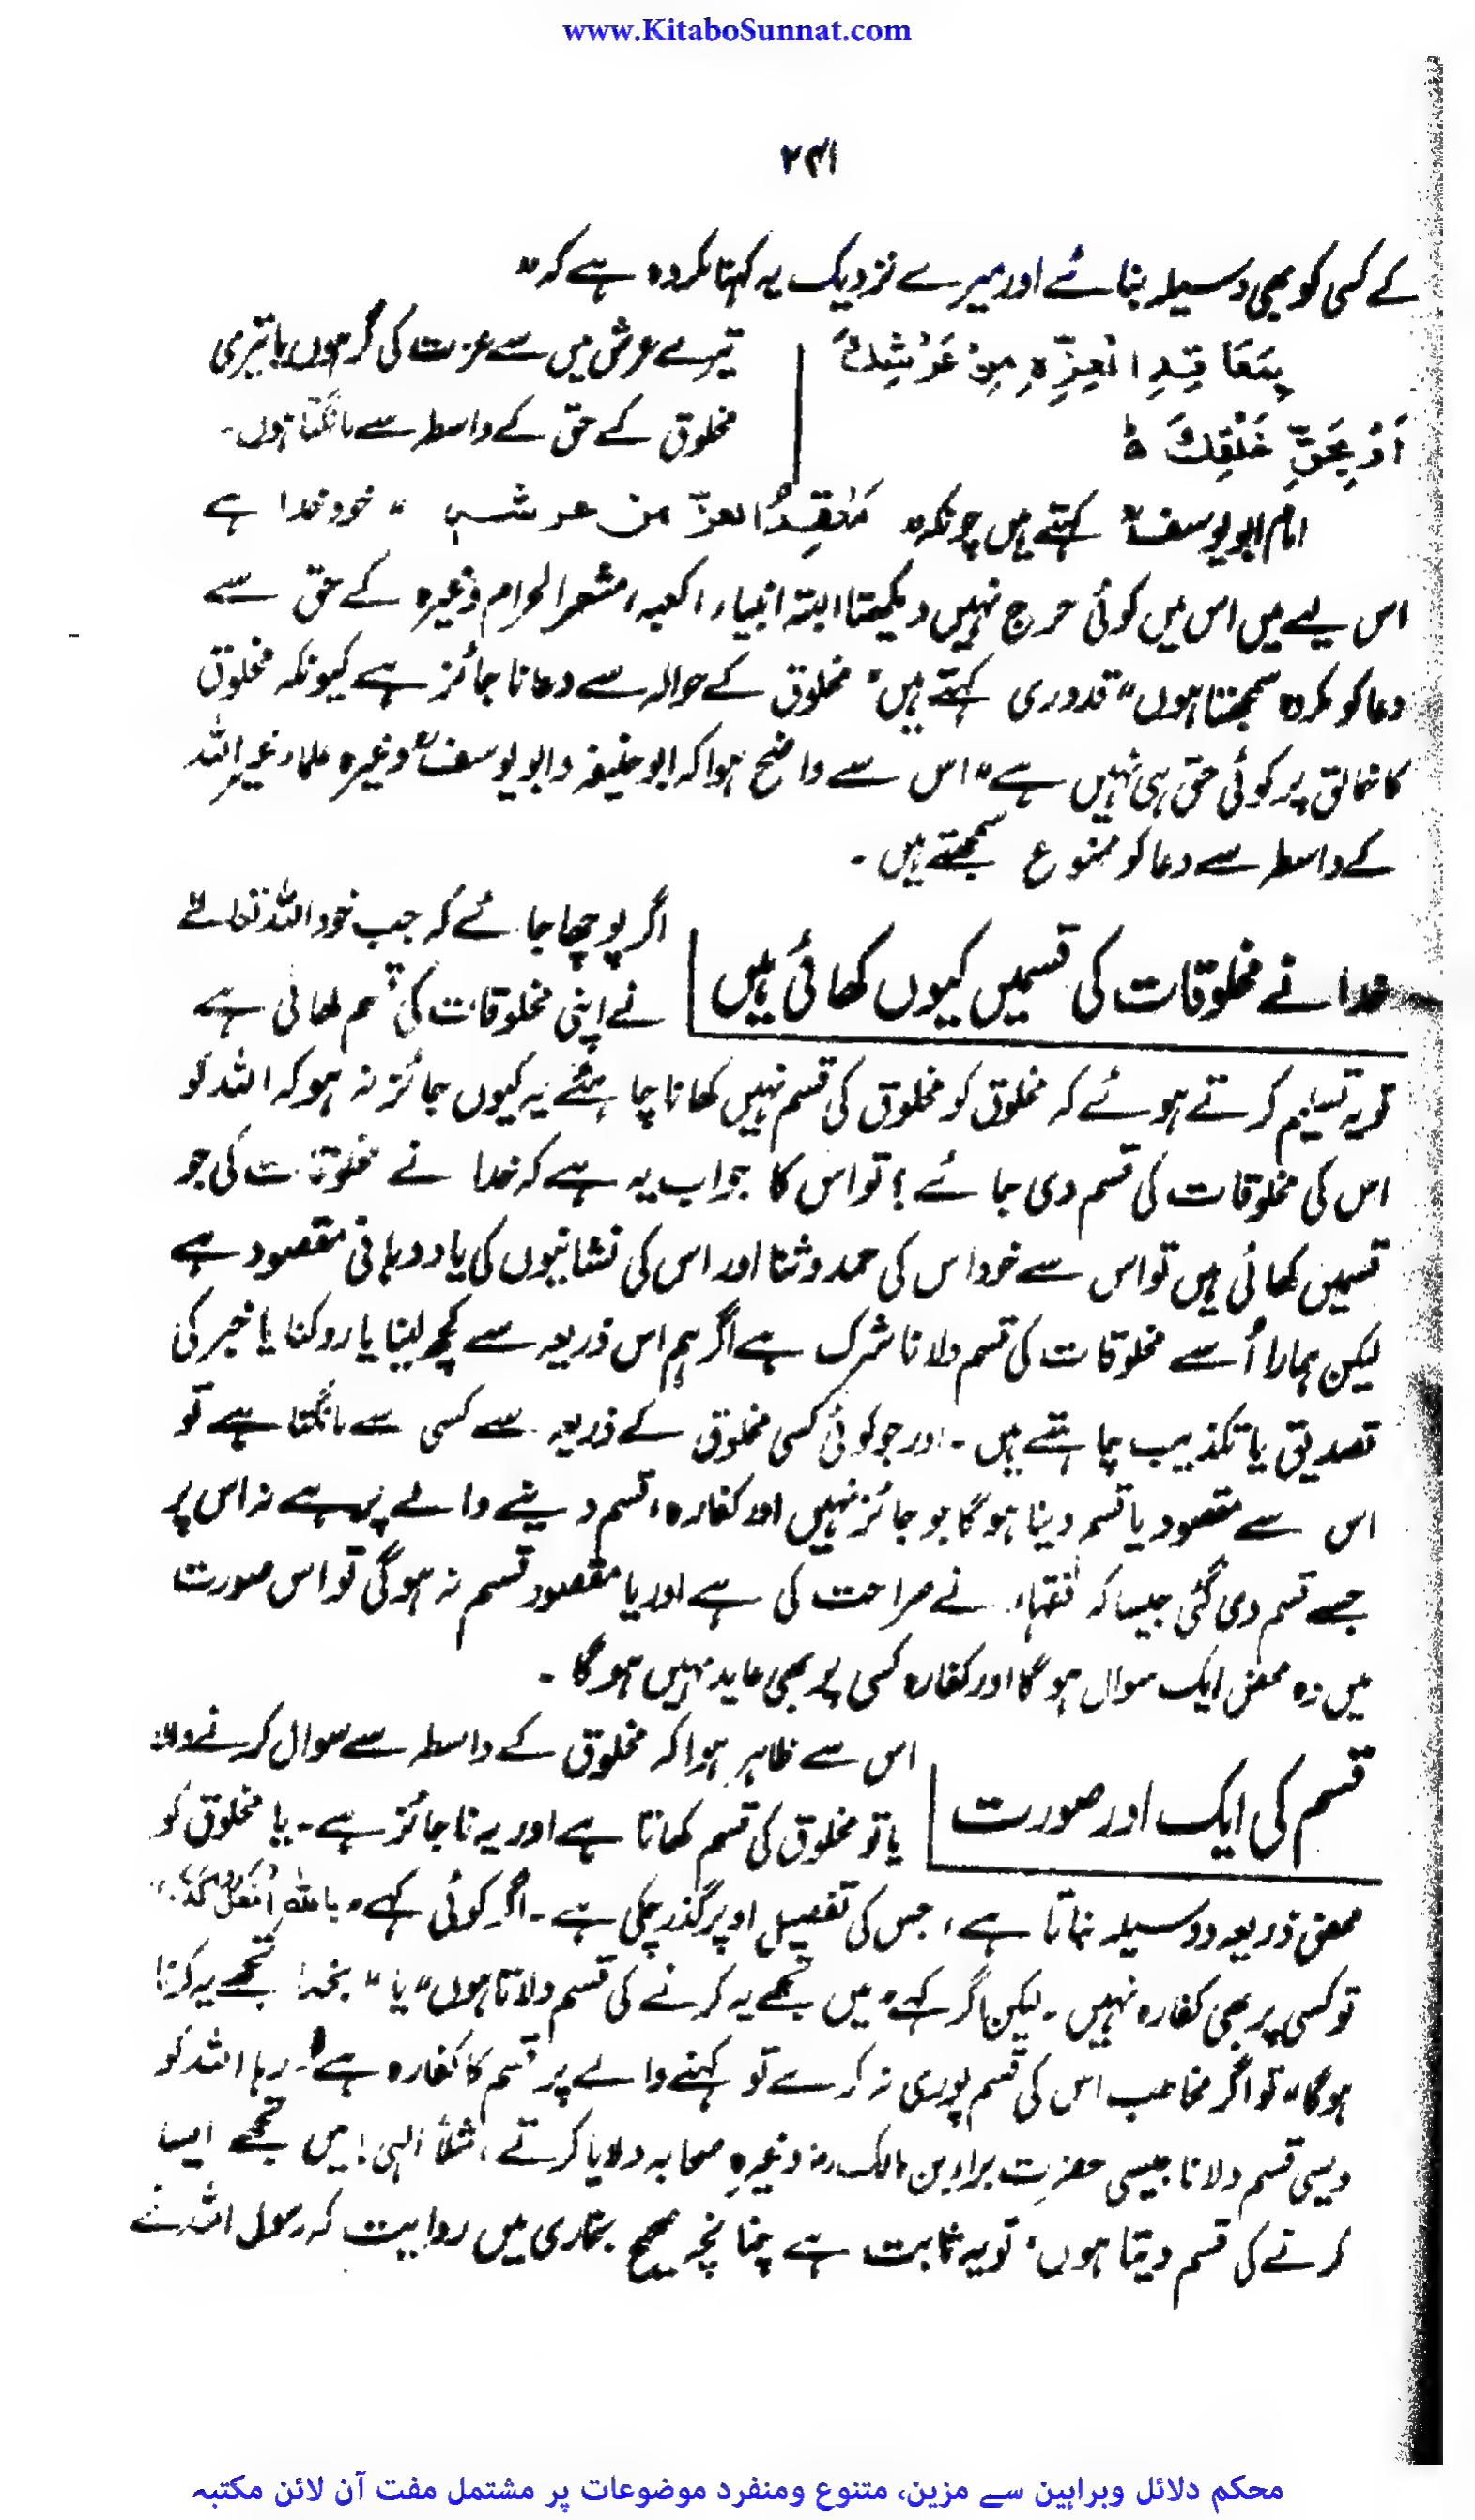 www.KitaboSunnat.com
۲۴۱
کے کسی کو بھی وسیلہ بنائے اور میرے نزدیک یہ کہنا مکروہ ہے کہ "
بِمَعَاقِدِ الْعِزَّۃِ مِنْ عَرْشِكَ
اَوْ بِحَقِّ خَلْقِكَ ط
تیرے عرش میں سے عزت کی گرہوں یا تیری
مخلوق کے حق کے واسطہ سے مانگتا ہوں۔
امام ابو یوسفؒ کہتے ہیں چونکہ "مَعْقِدُ العزّ من عرشہ" خود خدا ہے
اس لیے میں اس میں کوئی حرج نہیں دیکھتا البتہ انبیاء، کعبہ، مشعر الحرام وغیرہ کے حق سے
دعا کو مکروہ سمجھتا ہوں" قدوری کہتے ہیں "مخلوق کے حوالہ سے دعا ناجائز ہے کیونکہ مخلوق
کا خالق پر کوئی حق ہی نہیں ہے" اس سے واضح ہوا کہ ابو حنیفہ و ابو یوسفؒ وغیرہ علماء غیر اللہ
کے واسطہ سے دعا کو ممنوع سمجھتے ہیں۔
خدا نے مخلوقات کی قسمیں کیوں کھائی ہیں
اگر پوچھا جائے کہ جب خود اللہ تعالےٰ
نے اپنی مخلوقات کی قسم کھائی ہے
تو یہ تسلیم کرتے ہوئے کہ مخلوق کو مخلوق کی قسم نہیں کھانا چاہئے یہ کیوں جائز نہ ہو کہ اللہ کو
اس کی مخلوقات کی قسم دی جائے؟ تو اس کا جواب یہ ہے کہ خدا نے مخلوقات کی جو
قسمیں کھائی ہیں تو اس سے خود اس کی حمد و ثنا اور اس کی نشانیوں کی یاد دہانی مقصود ہے
لیکن ہمارا اُسے مخلوقات کی قسم دلانا شرک ہے اگر ہم اس ذریعہ سے کچھ لینا یا روکنا یا خبر کی
تصدیق یا تکذیب چاہتے ہیں۔ اور جو کوئی کسی مخلوق کے ذریعہ سے کسی سے مانگتا ہے تو
اس سے مقصود یا قسم دینا ہوگا جو جائز نہیں اور کفارہ، قسم دینے والے پر ہے نہ اس پر
جسے قسم دی گئی جیسا کہ فقہاء نے صراحت کی ہے اور یا مقصود قسم نہ ہوگی تو اس صورت
میں وہ محض ایک سوال ہوگا اور کفارہ کسی پر بھی عاید نہیں ہوگا۔
قسم کی ایک اور صورت
اس سے ظاہر ہوا کہ مخلوق کے واسطہ سے سوال کرنے والا
یا تو مخلوق کی قسم کھاتا ہے اور یہ ناجائز ہے۔ یا مخلوق کو
محض ذریعہ و وسیلہ بناتا ہے، جس کی تفصیل اوپر گذر چکی ہے۔ اگر کوئی کہے "باللہ افعل کذا"
تو کسی پر بھی کفارہ نہیں۔ لیکن اگر کہے "میں تجھے یہ کرنے کی قسم دلاتا ہوں" یا "بخدا تجھے یہ کرنا
ہوگا" تو اگر مخاطب اس کی قسم پوری نہ کرے تو کہنے والے پر قسم کا کفارہ ہے۔ رہا اللہ کو
ویسی قسم دلانا جیسی حضرت براء بن مالک رضہ وغیرہ صحابہ دلایا کرتے، مثلاً الٰہی! میں تجھے ایسا
کرنے کی قسم دیتا ہوں" تو یہ ثابت ہے چنانچہ صحیح بخاری میں روایت کہ رسول اللہ نے
محکم دلائل وبراہین سے مزین، متنوع ومنفرد موضوعات پر مشتمل مفت آن لائن مکتبہ